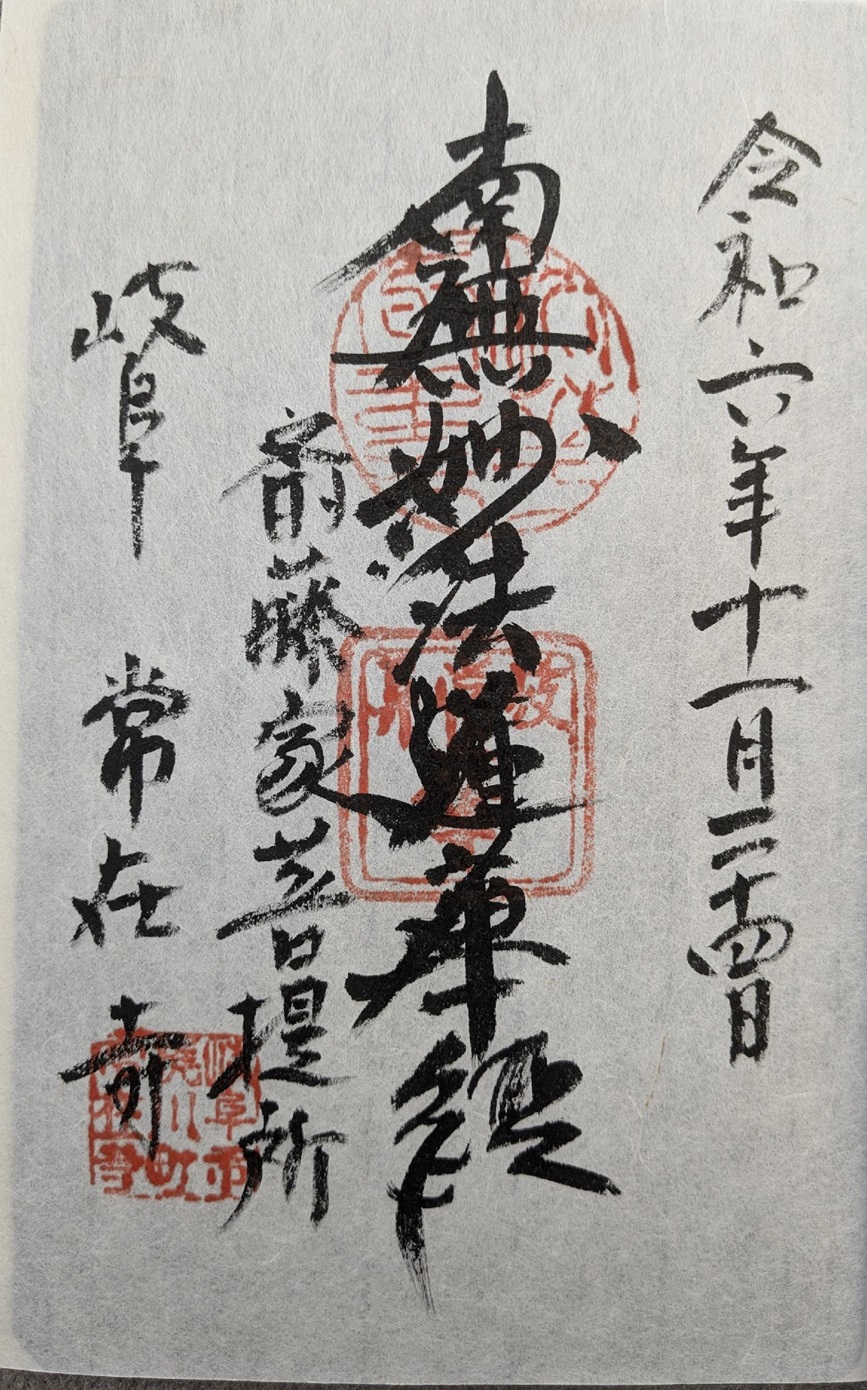 令和六年十一月二十四日
南無妙法蓮華経
斎藤家菩提所
岐阜 常在寺
岐阜市
梶川町
常在寺